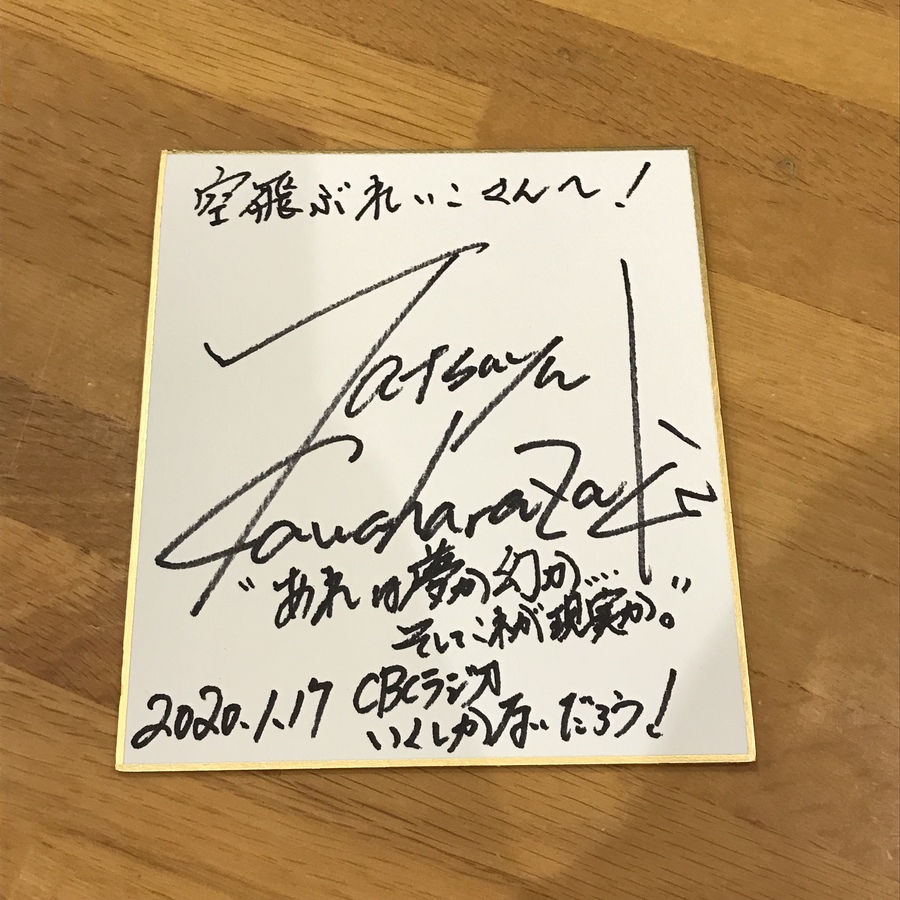 空飛ぶれいこさんへ!
Tatsuya
Kawaharazaki
"あれは夢か幻か…
そしてこれが現実か。"
2020.1.17 CBCラジオ
いくしかないだろう!